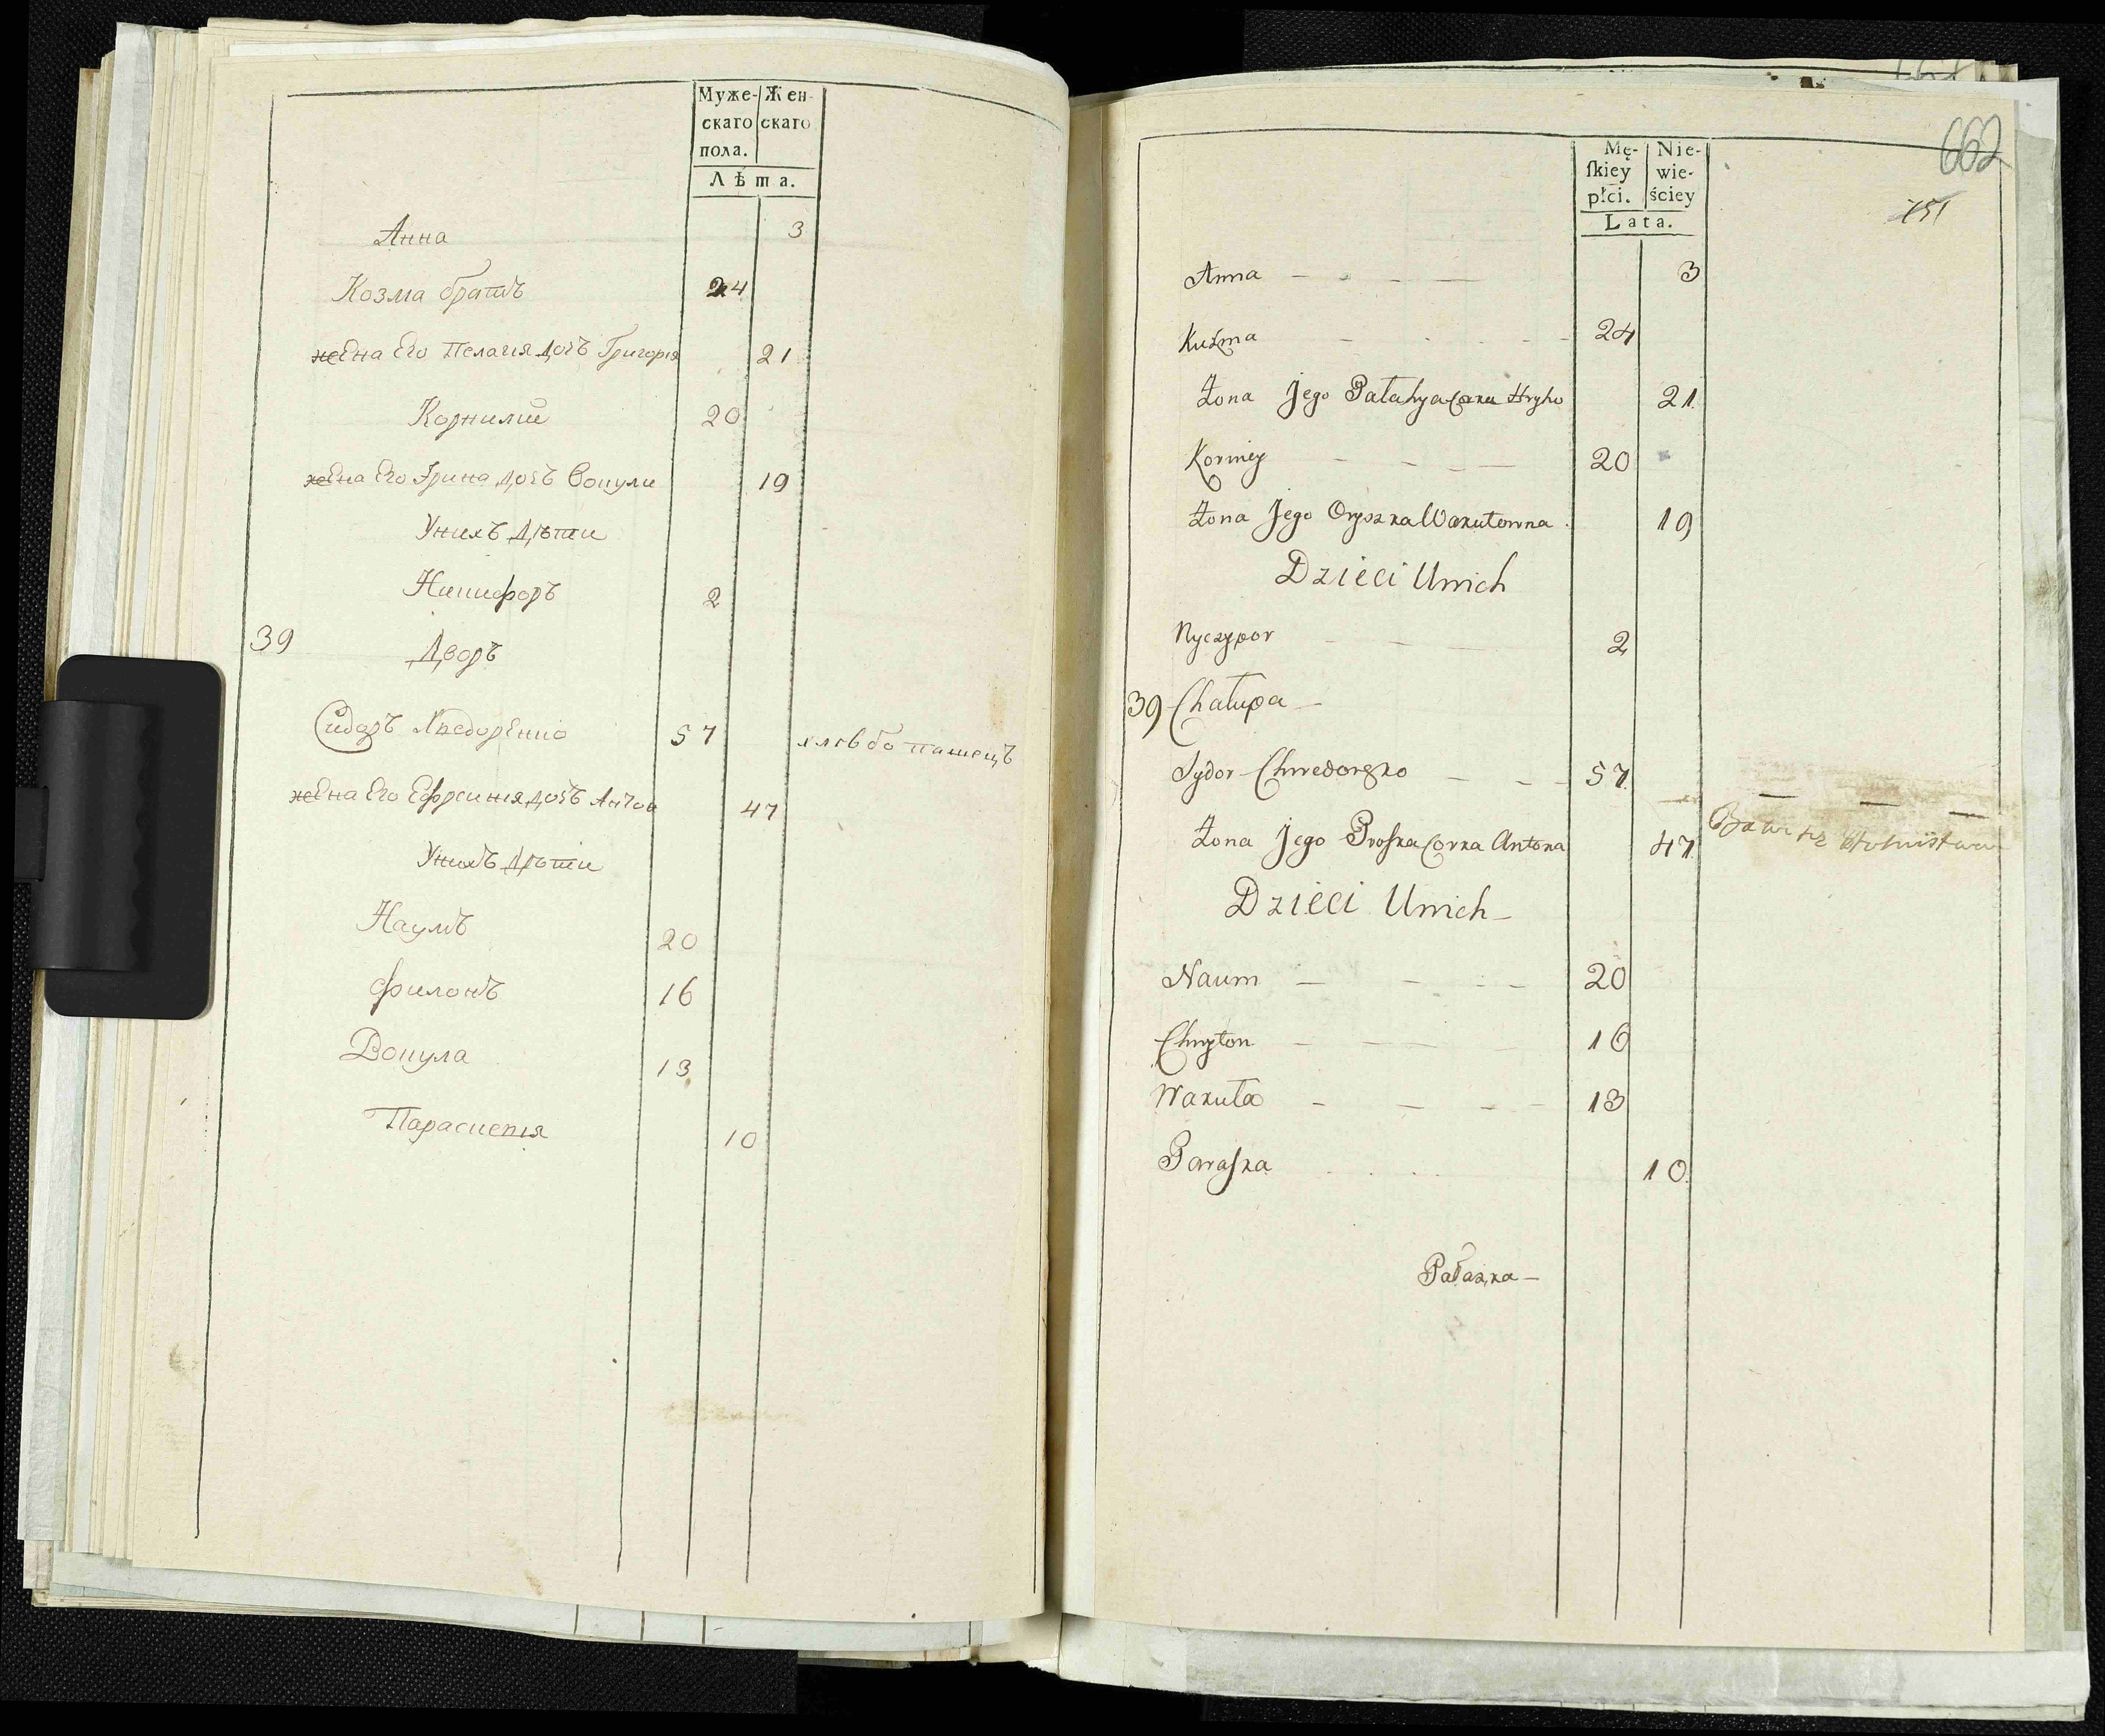 Муже- Жен-
скаго скаго
пола.
Лѣта.
Анна 3
Козма братъ 24
жена Его Пелагія дочъ Григорія 21
Корнилій 20
жена Его Ірина дочъ Вокули 19
Унихъ Дѣти
Никифоръ 2
39 Дворъ
Сидоръ Хведоренко 57 хлѣбопашецъ
жена Его Ефросинія дочъ Антона 47
Унихъ Дѣти
Наумъ 20
Филонъ 16
Вокула 13
Параскевія 10
662
151
Mę- Nie-
ſkiey wie-
płci. ściey
Lata.
Anna 3
Kuźma 24
Żona Jego Pałahya Corka Hryho 21
Korniey 20
Żona Jego Oryszka Wakułowna 19
Dzieci Unich
Nyczypor 2
39 Chałupa
Sydor Chwedorzko 57
Żona Jego Proſka Corka Antona 47
Bawi się
Dzieci Unich
Naum 20
Chwyłon 16
Wakuła 13
Paraſka 10
Pałaszka